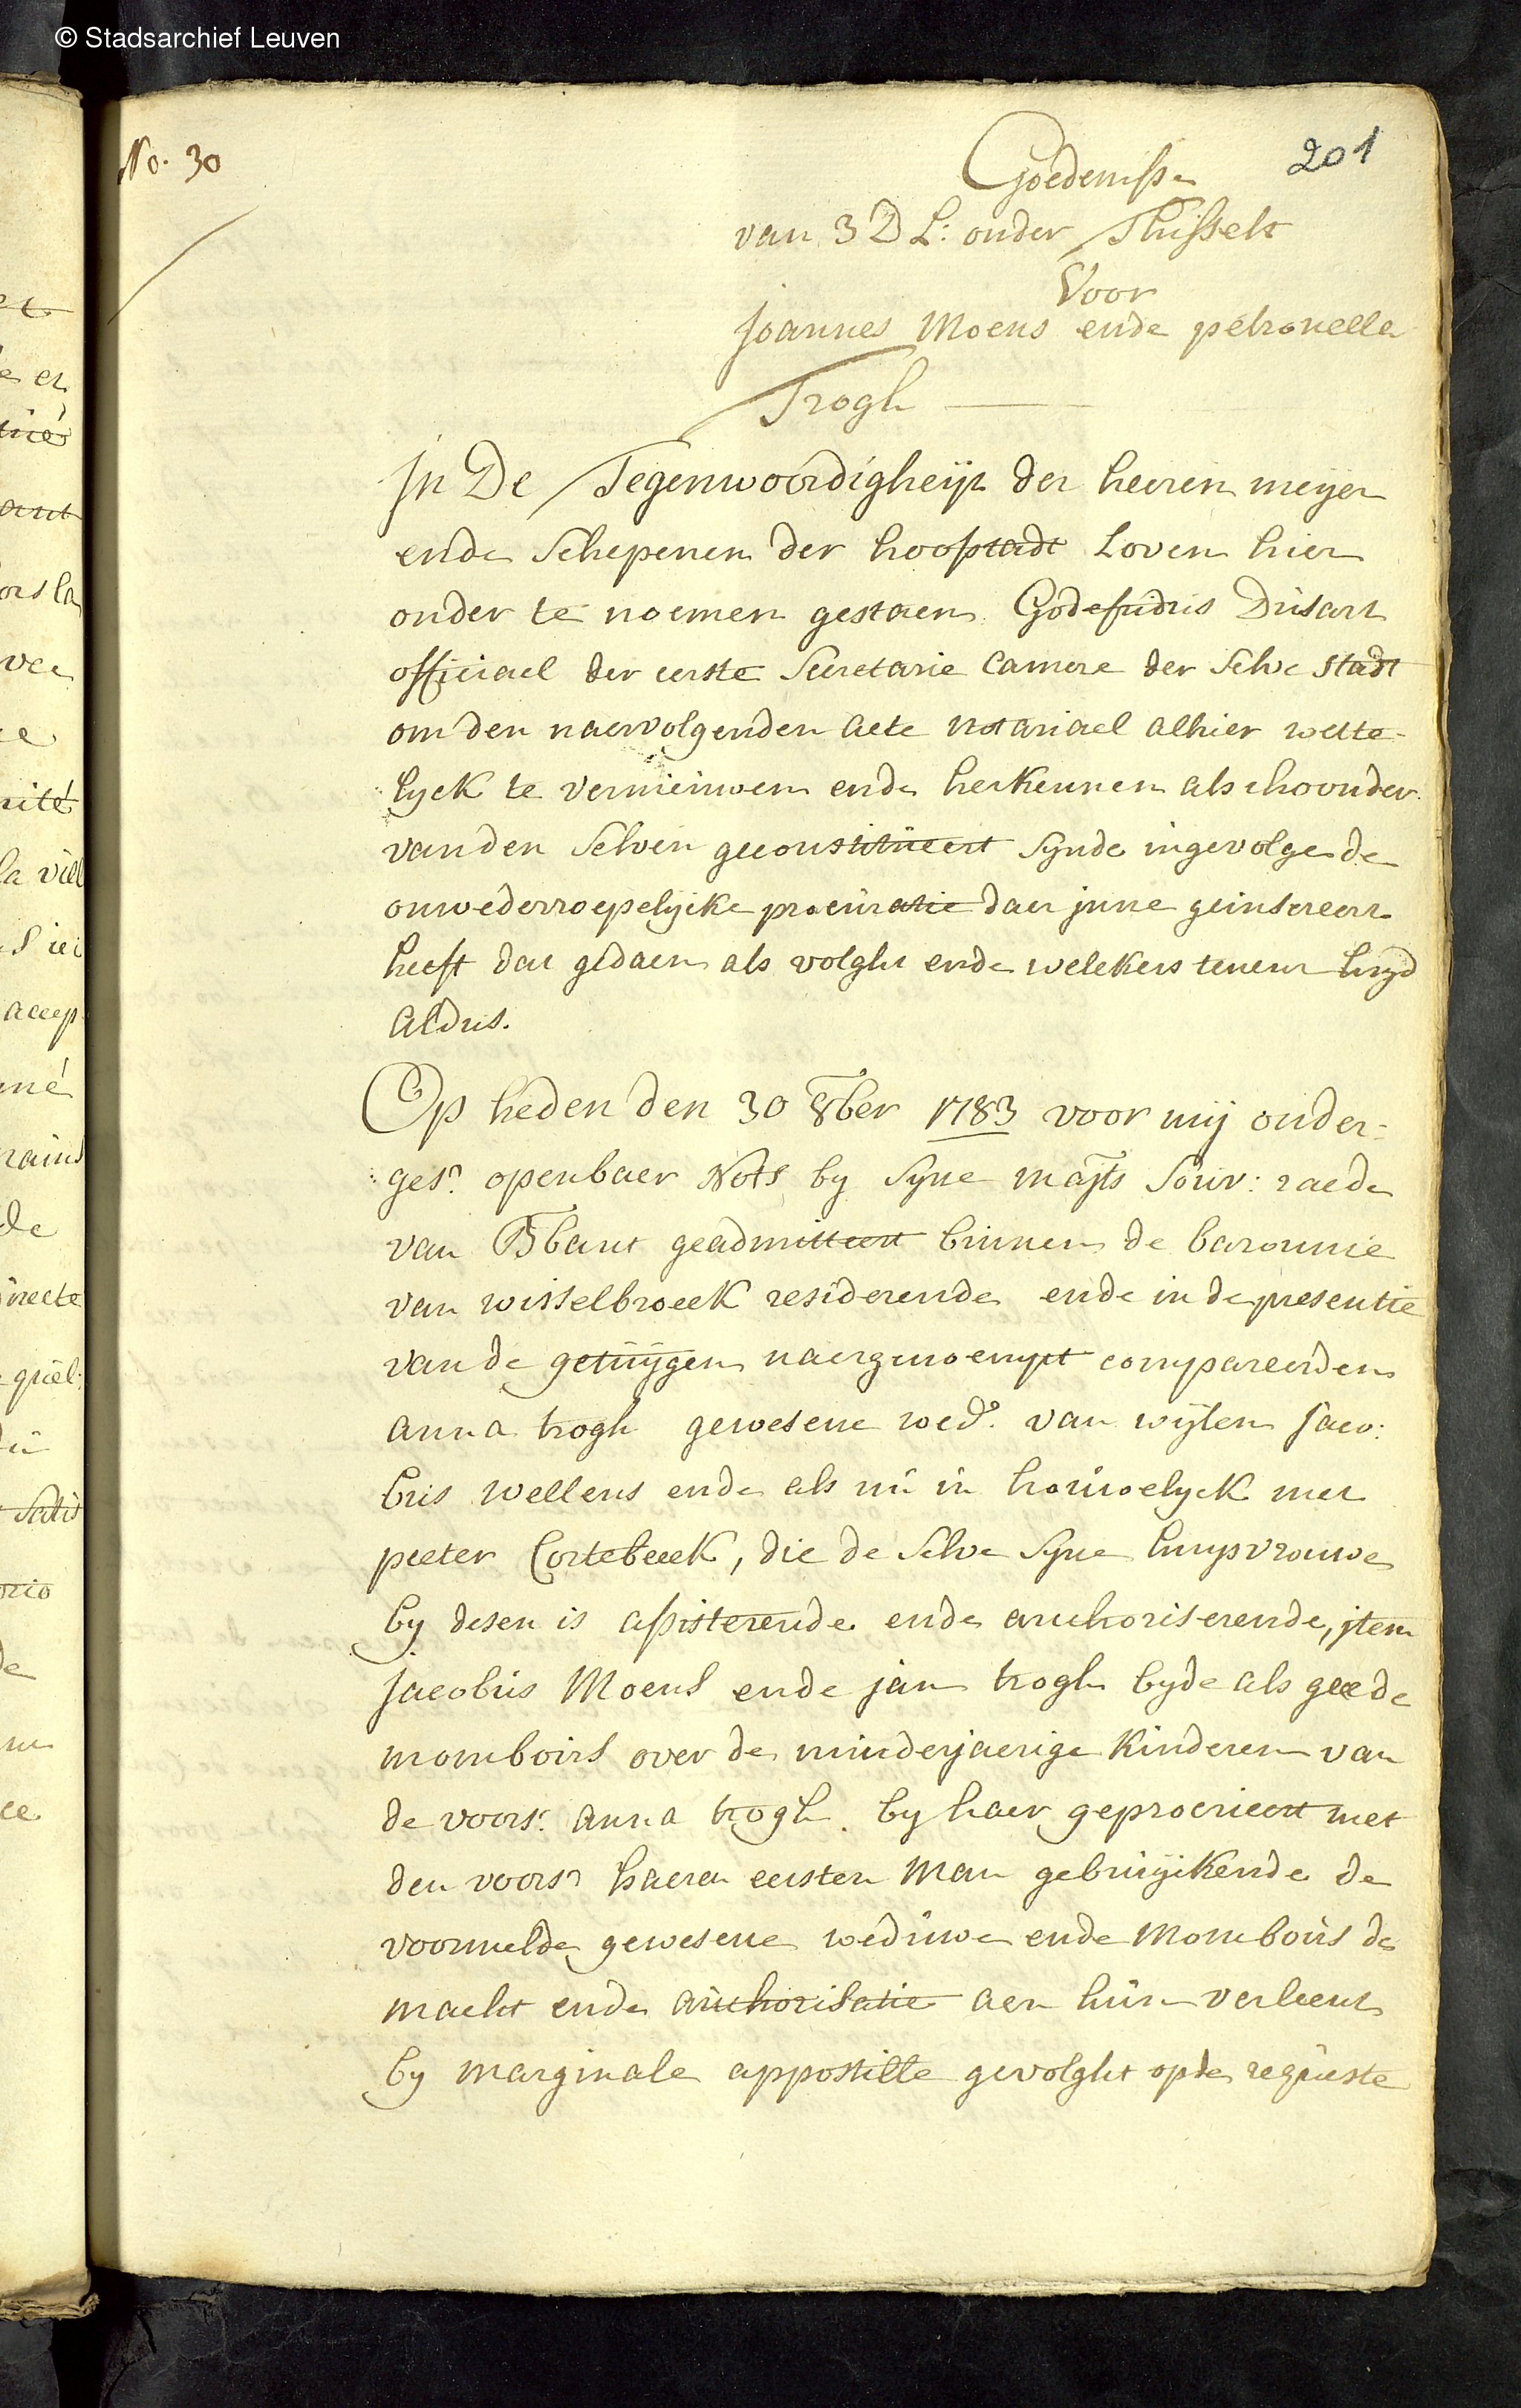 © Stadsarchief Leuven
No. 30
201
Goedenisse
van 3 D L: onder Thisselt
Voor
Joannes Moens ende petronella
Trogh
In De Tegenwoórdigheijt der heeren meijer
ende Schepenen der hoofstadt Loven hier
onder te noemen gestaen Godefridus Dusart
officiael der eerste Secretarie Camere der Selve stadt
om den naervolgenden acte notariael alhier wette-
lyck te vernieuwen ende herkennen als thoonder
van den Selven geconstitueert synde ingevolge de
onwederroepelycke procuratie daer inne geinsereert
heeft dat gedaen als volght ende welckers teneur luyd
aldus.
Op heden den 30 8ber 1783 voor mij onder-
ges. openbaer Nots by Syne majts Souv: raede
van Bbant geadmitteert binnen de baronnie
van wisselbroeck residerende ende in de presentie
van de getuygen naergenoempt compareerden
anna trogh gewesene wede. van wijlen Jaco:
bus Wellens ende als nu in houwelyck met
peeter Cortebeeck, die de Selve Syne huysvrouwe
by desen is assisterende ende authoriserende, item
Jacobus Moens ende jan trogh byde als geede
momboirs over de minderjaerige Kinderen van
de voors. anna trogh by haer geprocrieert met
den voors. haeren eersten Man gebruyckende de
voormelde gewesene weduwe ende Momboirs de
macht ende authorisatie aen hun verleent
by marginale appostille gevolght op de requeste